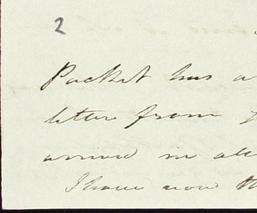 2
Packet has a
letter from
arrived in all
I have now th